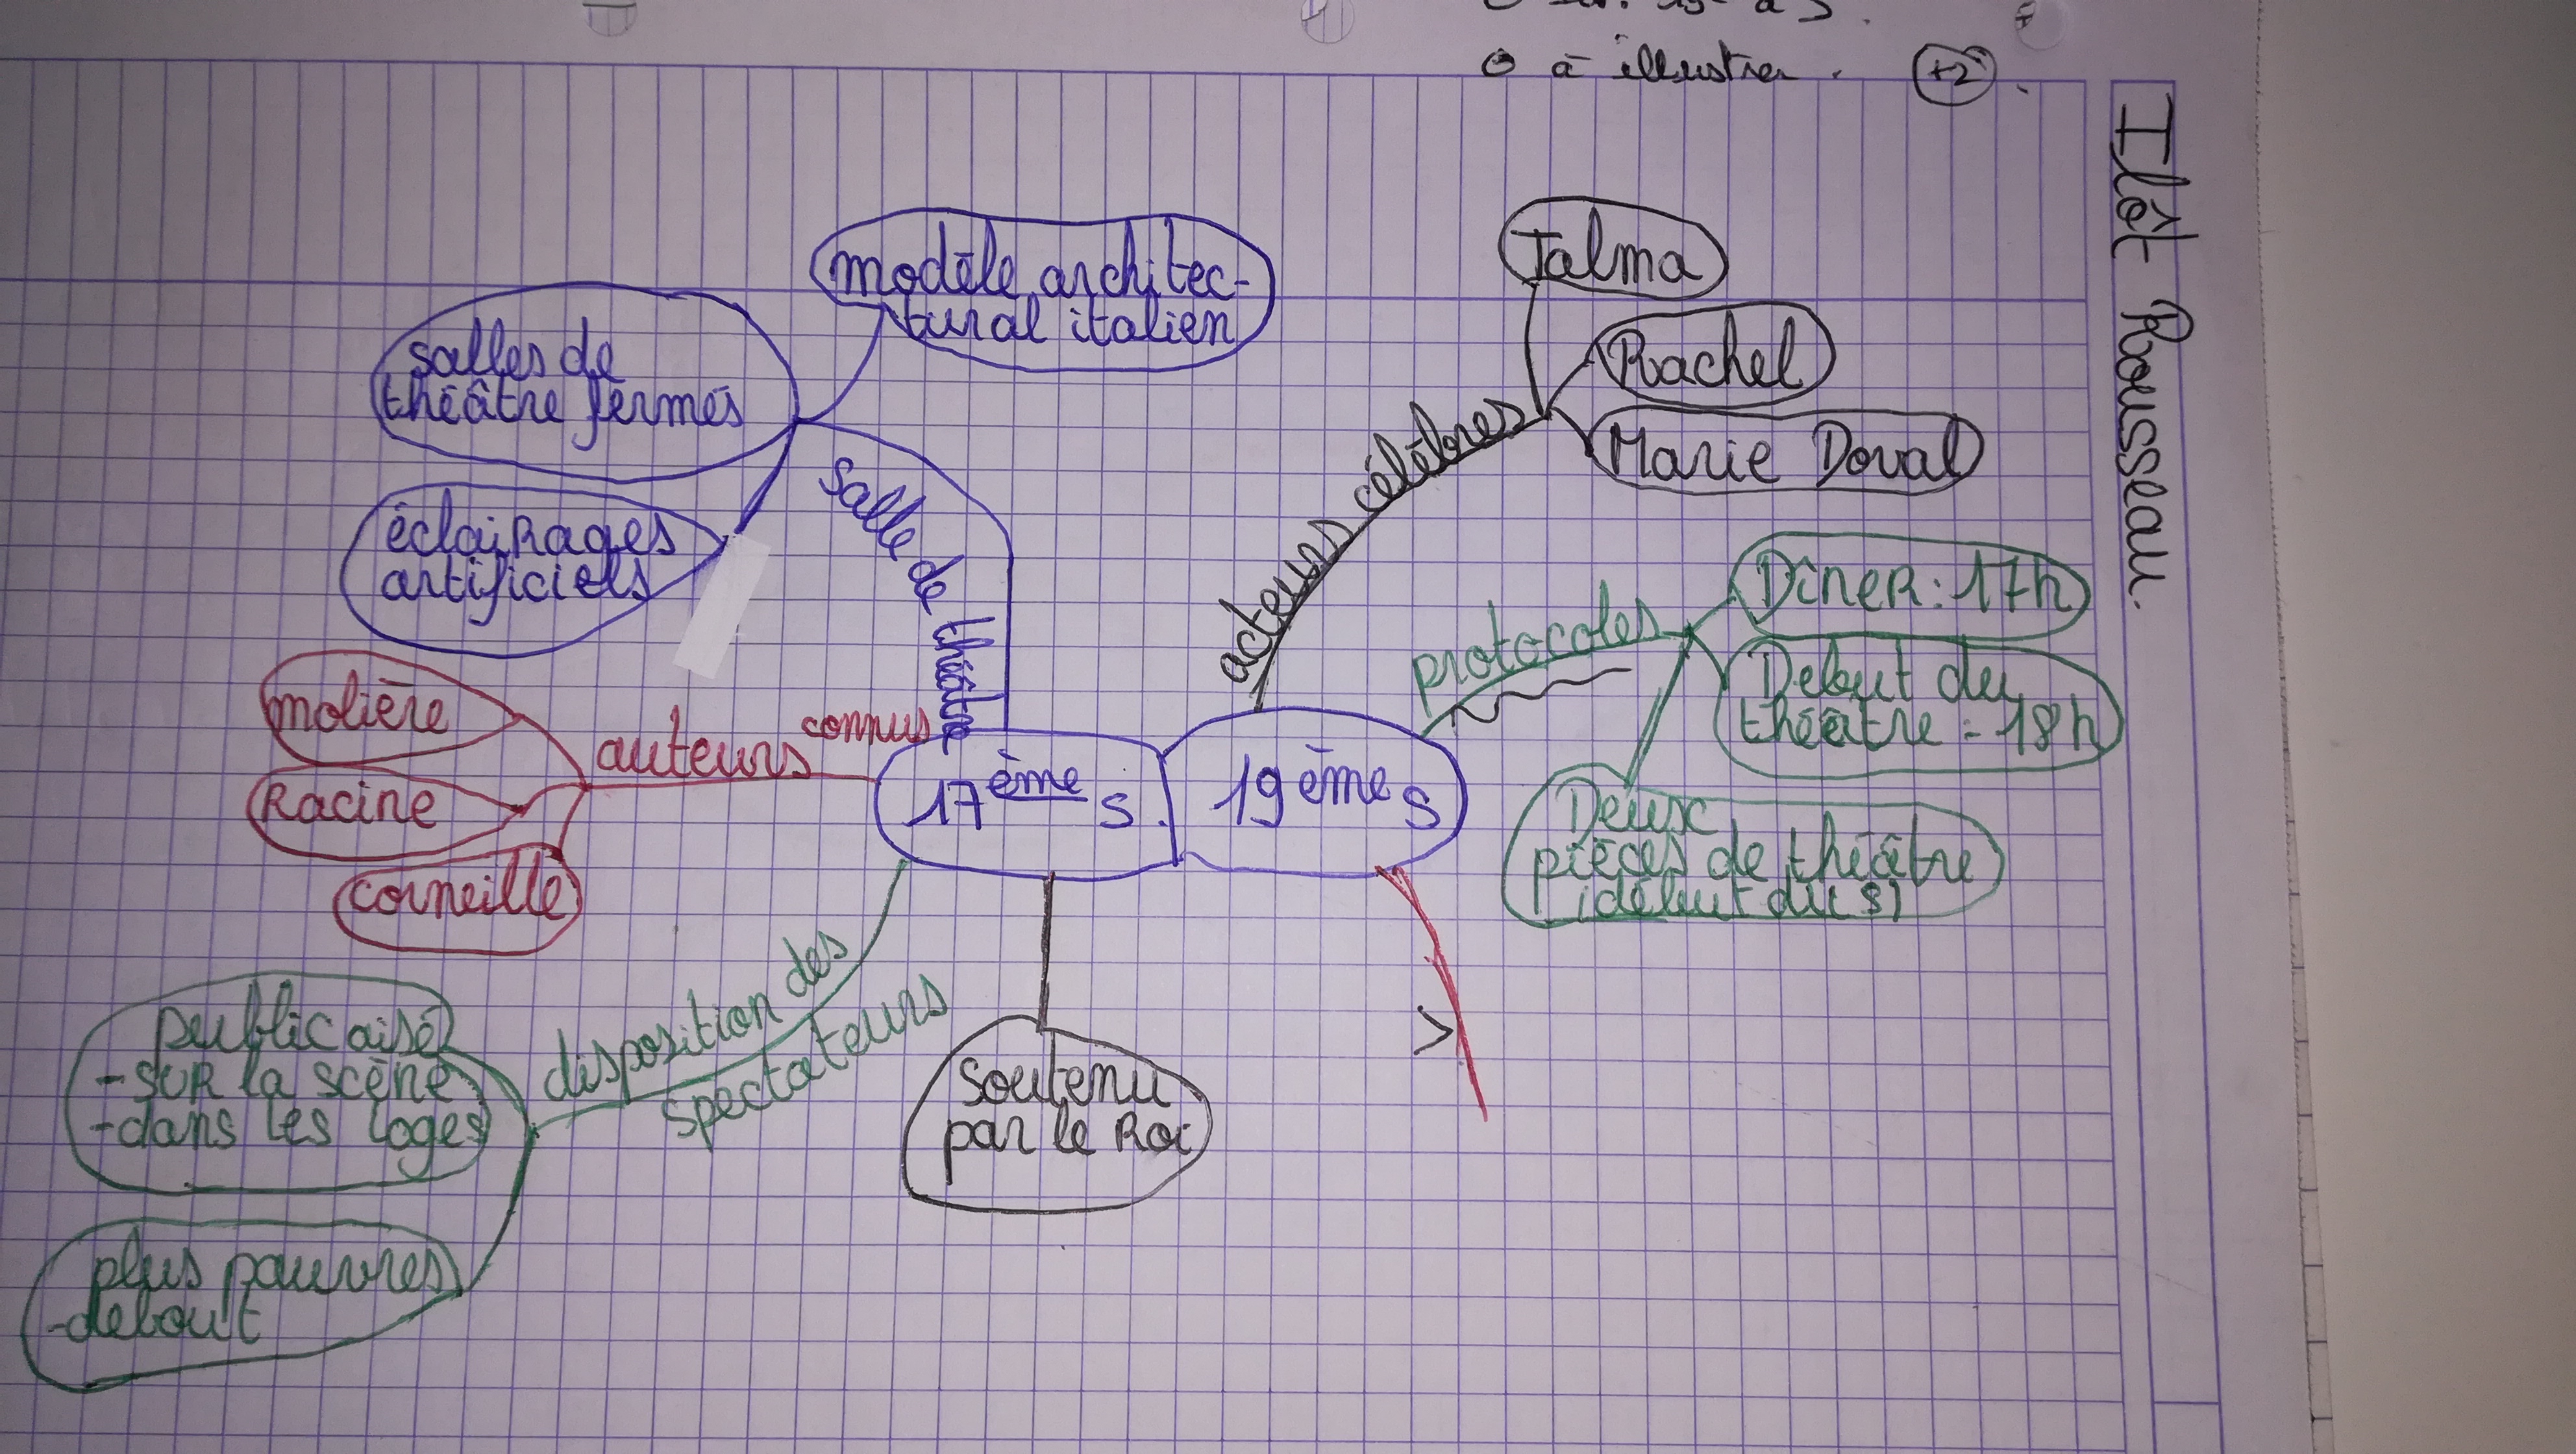 à illustrer. +2
Ilôt Rousseau.
modèle architec-
tural italien
salles de
théâtre fermés
éclairages
artificiels
salle de théâtre
molière
Racine
corneille
auteurs connus
17ème s.
19ème s
Talma
Rachel
Marie Doval
acteurs célèbres
protocoles
Dîner : 17h
Debut du
théâtre = 18h
Deux
pièces de théâtre
(début du s)
disposition des
spectateurs
public aisé
- sur la scène
- dans les loges
plus pauvres
- debout
Soutenu
par le Roi
>